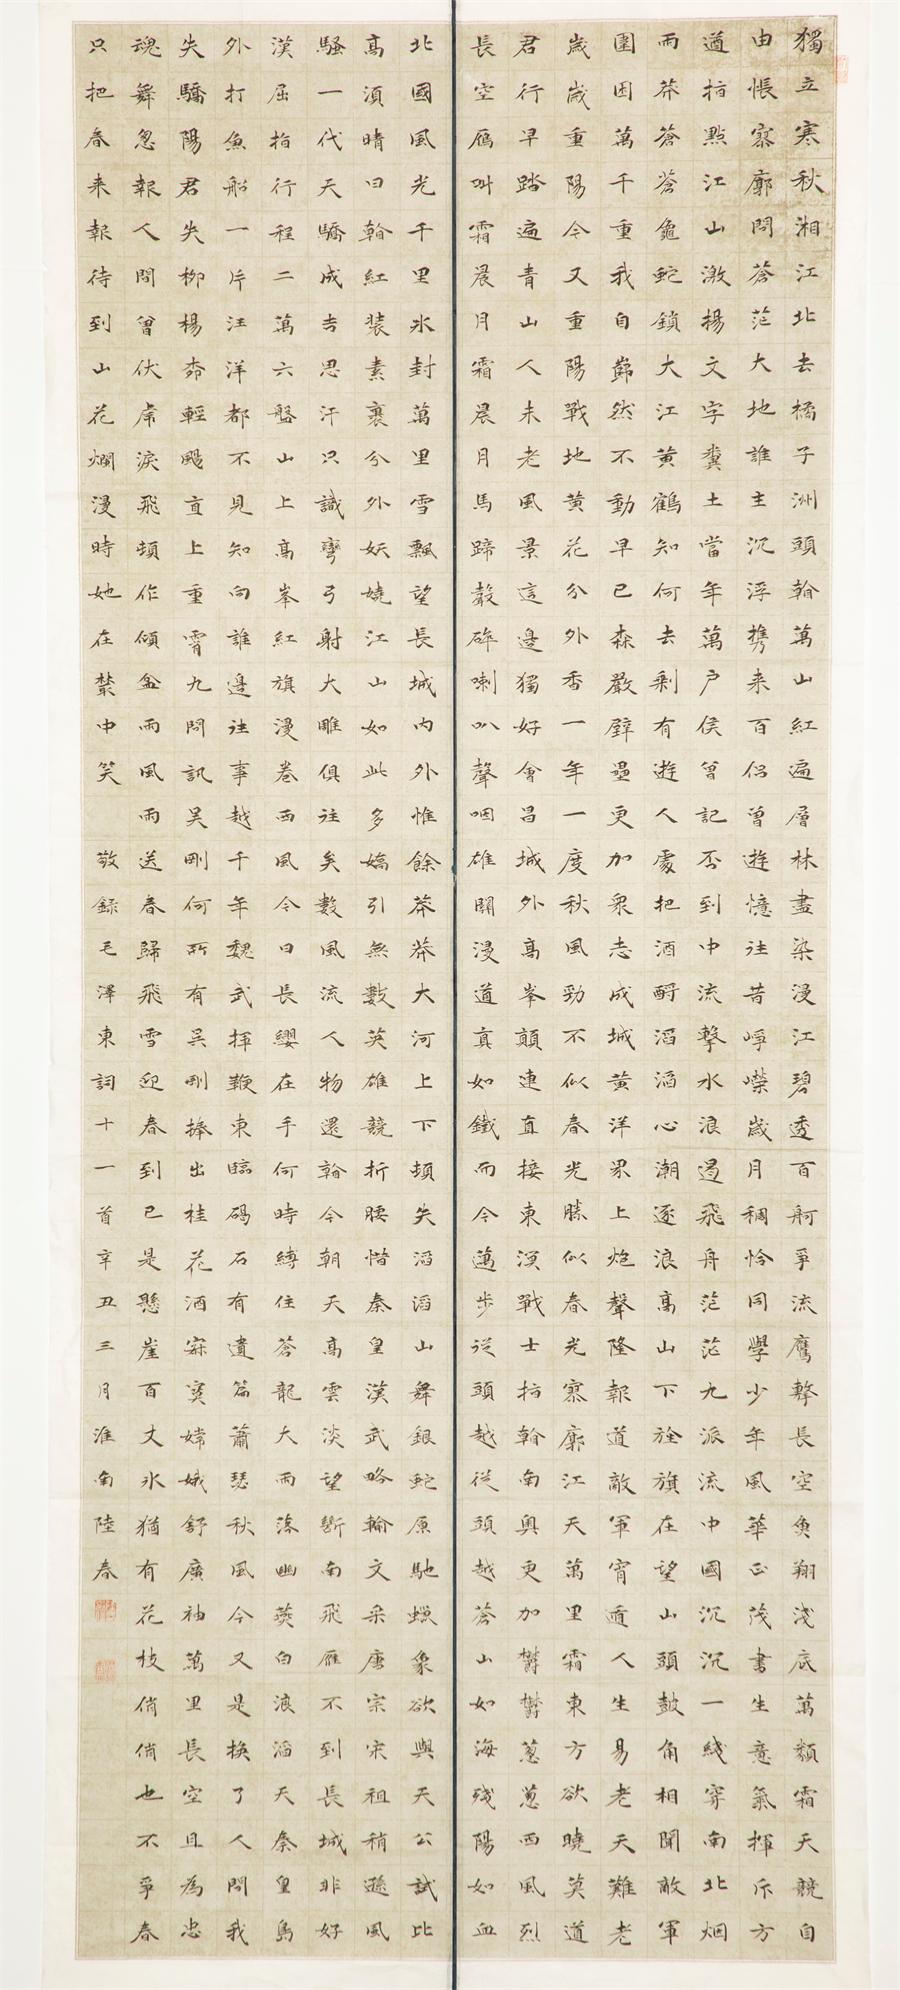 獨立寒秋湘江北去橘子洲頭看萬山紅遍層林盡染漫江碧透百舸爭流鷹擊長空魚翔淺底萬類霜天競自
由悵寥廓問蒼茫大地誰主沉浮携来百侣曾遊憶往昔崢嶸歲月稠恰同學少年風華正茂書生意氣揮斥方
遒指點江山激揚文字糞土當年萬户侯曾記否到中流擊水浪遏飛舟茫茫九派流中國沉沉一綫穿南北烟
雨莽蒼蒼龜蛇鎖大江黄鶴知何去剩有遊人處把酒酹滔滔心潮逐浪高山下旌旗在望山頭鼓角相聞敵軍
圍困萬千重我自巋然不動早已森嚴壁壘更加衆志成城黄洋界上炮聲隆報道敵軍宵遁人生易老天難老
歲歲重陽今又重陽戰地黄花分外香一年一度秋風勁不似春光勝似春光寥廓江天萬里霜東方欲曉莫道
君行早踏遍青山人未老風景這邊獨好會昌城外高峯顛連直接東溟戰士指看南粤更加鬱鬱葱葱西風烈
長空雁叫霜晨月霜晨月馬蹄聲碎喇叭聲咽雄關漫道真如鐵而今邁步從頭越從頭越蒼山如海殘陽如血
北國風光千里冰封萬里雪飄望長城内外惟餘莽莽大河上下頓失滔滔山舞銀蛇原馳蠟象欲與天公試比
高須晴日看紅裝素裹分外妖嬈江山如此多嬌引無數英雄競折腰惜秦皇漢武略輸文采唐宗宋祖稍遜風
騷一代天驕成吉思汗只識彎弓射大雕俱往矣數風流人物還看今朝天高雲淡望斷南飛雁不到長城非好
漢屈指行程二萬六盤山上高峯紅旗漫卷西風今日長纓在手何時縛住蒼龍大雨落幽燕白浪滔天秦皇島
外打魚船一片汪洋都不見知向誰邊往事越千年魏武揮鞭東臨碣石有遺篇蕭瑟秋風今又是換了人間我
失驕陽君失柳楊柳輕颺直上重霄九問訊吴剛何所有吴剛捧出桂花酒寂寞嫦娥舒廣袖萬里長空且為忠
魂舞忽報人間曾伏虎淚飛頓作傾盆雨風雨送春歸飛雪迎春到已是懸崖百丈冰猶有花枝俏俏也不爭春
只把春来報待到山花爛漫時她在叢中笑 敬録毛澤東詞十一首辛丑三月淮南陸春